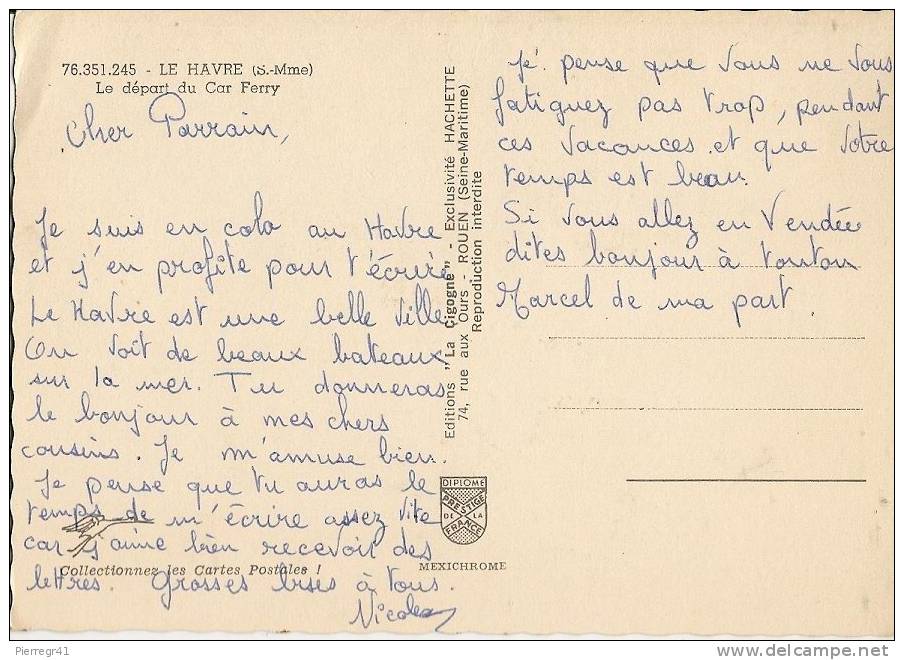 76.351.245 - LE HAVRE (S.-Mme)
Le départ du Car Ferry
Cher Parrain,
Je suis en colo au Havre
et j'en profite pour t'écrire
Le Havre est une belle ville.
On voit de beaux bateaux
sur la mer. Tu donneras
le bonjour à mes chers
cousins. Je m'amuse bien.
Je pense que tu auras le
temps de m'écrire assez vite
car j'aime bien recevoir des
lettres. Grosses bises à tous.
Nicolas
Collectionnez les Cartes Postales !
Editions "La Cigogne" - Exclusivité HACHETTE
74, rue aux Ours - ROUEN (Seine-Maritime)
Reproduction interdite
DIPLOME
PRESTIGE
DE LA
FRANCE
MEXICHROME
Je pense que vous ne vous
fatiguez pas trop, pendant
ces vacances et que votre
temps est beau.
Si vous allez en Vendée
dites bonjour à tonton
Marcel de ma part
Pierregr41
www.delcampe.net